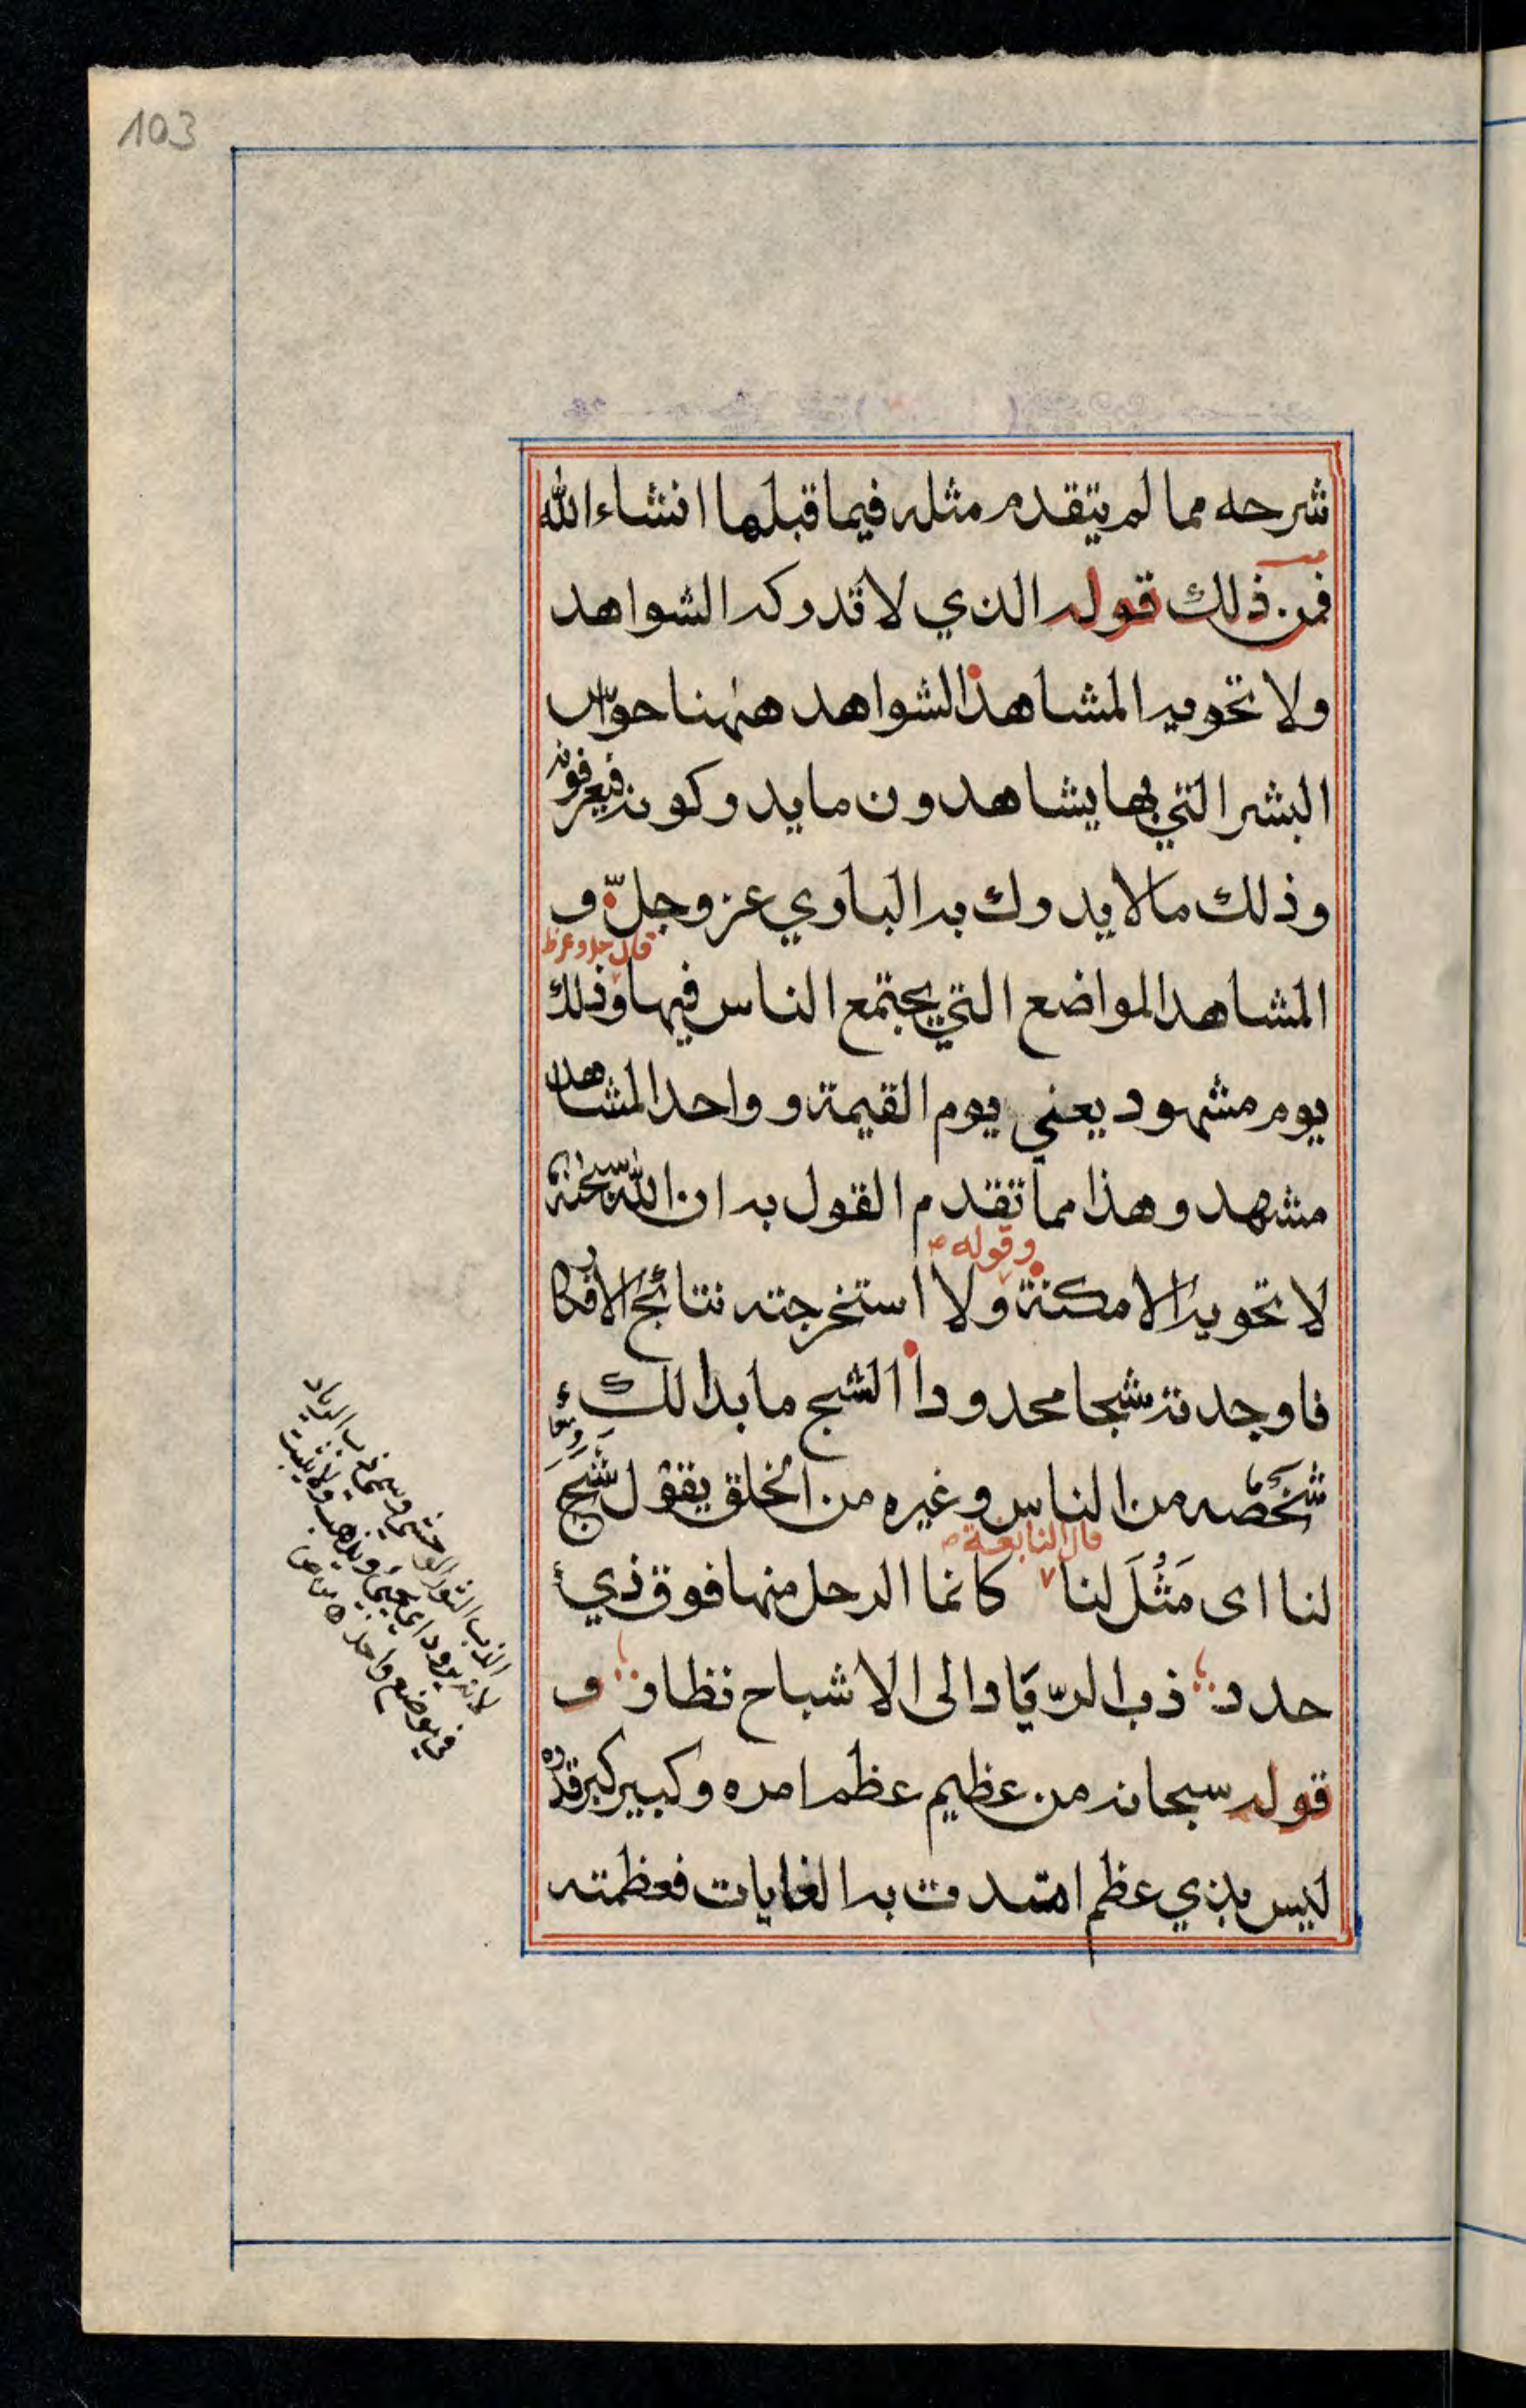 103
شرحه مما لم يتقدم مثله فيما قبلها انشاء الله
فمن ذلك قوله الذي لا تدركه الشواهد
ولا تحويه المشاهد الشواهد ههنا حواس
البشر التي بها يشاهدون ما يدركونه فيعرفونه
وذلك ما لا يدرك به الباري عز وجلّ و
قال جل وعز ظ
المشاهد المواضع التي يجتمع الناس فيها وذلك
يوم مشهود يعني يوم القيمة وواحد المشاهد
مشهد وهذا مما تقدم القول به ان الله سبحنه
وقوله ص
لا تحويه الامكنة ولا استخرجته نتائج الافكار
فاوجدته شبحا محدودا الشبح ما بدا لك
شَخْصُه من الناس وغيره من الخلق يقول شَبَحَ
قال النابغة ص
لنا اى مَثُلَ لنا كانما الرحل منها فوق ذي
جدد ذب الريّاد الى الاشباح نظار و
قوله سبحانه من عظيم عظم امره وكبير كبر قدره
ليس بذي عظم امتدت به الغايات فعظمته
الذب الثور الوحشي وسمي ذب الرياد
لانه يرود اي يجيئ ويذهب ولا يثبت
في موضع واحد